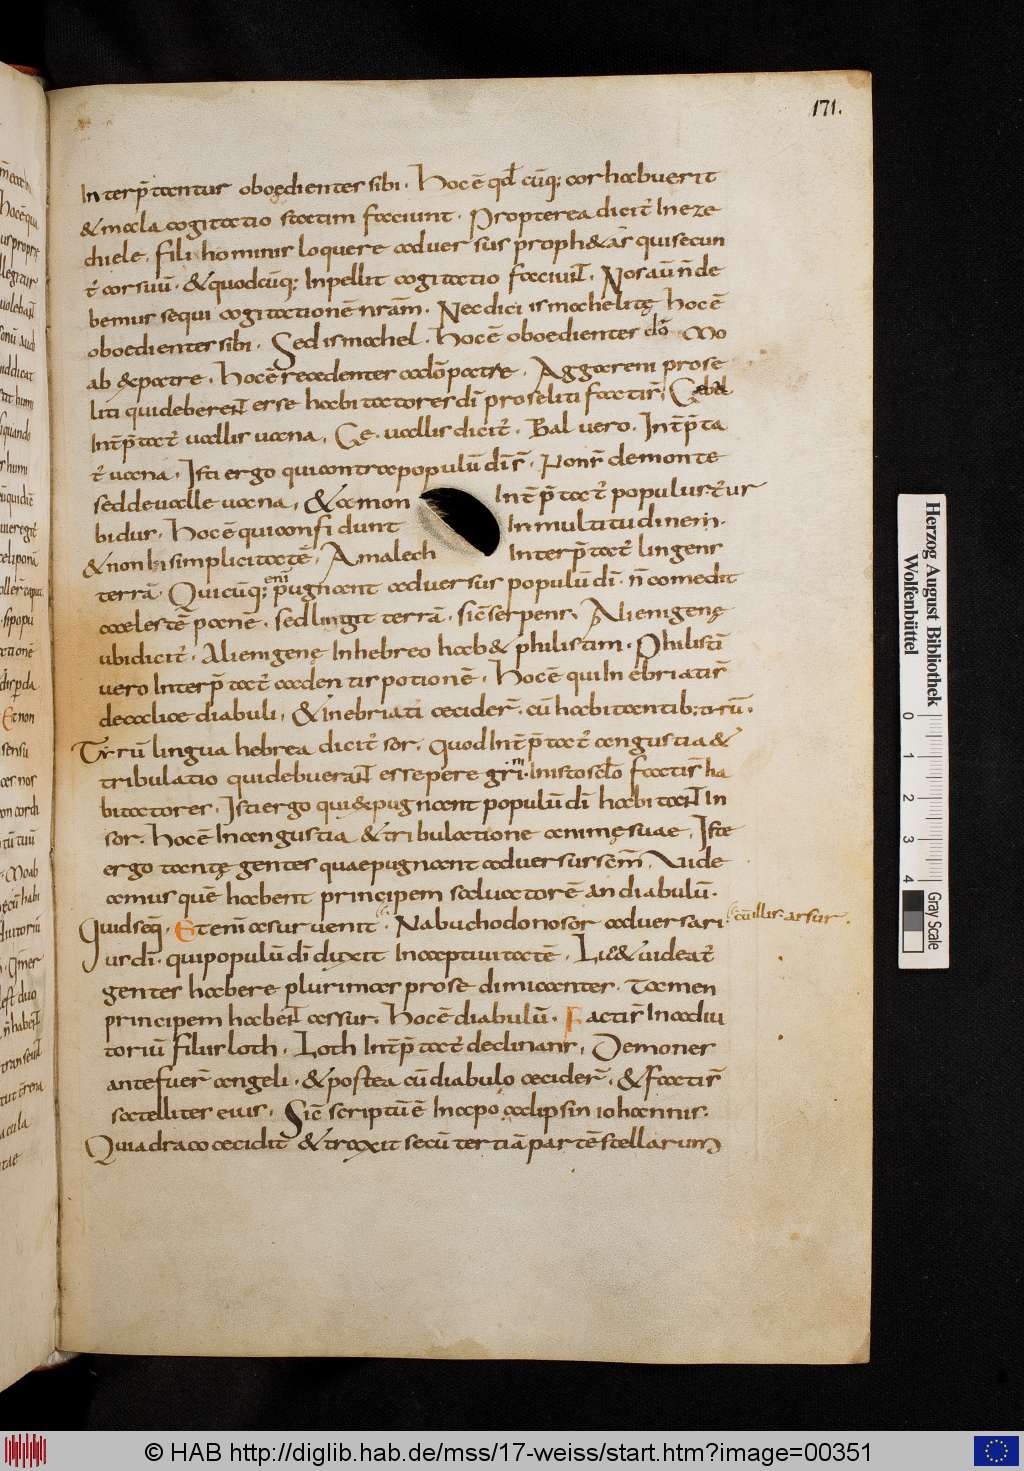 171.
Interp̄tantur oboedientes sibi. Hoc ē qđ cūq; cor habuerit
& mala cogitatio statim faciunt. Propterea dicit̄ In eze
chiele. fili hominis loquere adversus proph&as qui secun
t̄ cor suū. & quodcūq; Inpellit cogitatio faciunt. Nos aū n̄ de
bemus sequi cogitationē nrām. Nec dici ismahelitę hoc ē
oboedientes sibi. Sed ismahel. hoc ē oboedientes dō. Mo
ab ex patre. hoc ē recedentes a dō patre. Aggareni prose
liti qui deberent esse habitatores dī proseliti facti s̄. Gebal
Int̄p̄tat̄ vallis vana. Ge. vallis dicit̄. Bal vero. Int̄p̄ta
t̄ vana. Isti ergo qui contra populū dī s̄. Non s̄ de monte
sed de valle vana. & amon Int̄p̄tat̄ populus t̄ur
bidus. Hoc ē qui confidunt In multitudinem.
& non hi simplicitatē. Amalech Interp̄tat̄ lingens
terrā. Quicūq; enī pugnant adversus populū dī. n̄ comedit
caelestē panē. sed lingit terrā. sic̄ serpens. Alienigenę
ubi dicit̄. Alienigenę In hebreo hab& philistim. Philistī
vero Interp̄tat̄ cadentis potionē. Hoc ē qui Inebriati s̄
de calice diabuli. & inebriati cecider̄. cū habitantib; tirū.
Tyrū lingua hebrea dicit̄ sor. quod Int̄p̄tat̄ angustia &
tribulatio qui debuerant esse peregrini. In isto sclo facti s̄ ha
bitatores. Isti ergo qui expugnant populū dī habitant In
sor. hoc ē In angustia & tribulatione animę suae. Iste
ergo tantę gentes quae pugnant adversus sem̄. Uide
amus quē habent principem salvatorē an diabulū.
Quid seq̄. Etenī assur venit. Nabuchodonosor adversari cū illis. assur.
us dī. qui populū dī duxit In captiuitatē. Lic& uideat̄
gentes habere plurimas pro se dimicantes. Tamen
principem habent assur. Hoc ē diabulū. Facti s̄ In adiu
toriū filiis loth. Loth Int̄p̄tat̄ declinans. Demones
ante fuer̄ angeli. & postea cū diabulo cecider̄. & facti s̄
satellites eius. Sic̄ scriptū ē In apocalipsin iohannis.
Quia draco cecidit & traxit secū tertiā partē stellarum
Herzog August Bibliothek
Wolfenbüttel
0 1 2 3 4
Gray Scale
© HAB http://diglib.hab.de/mss/17-weiss/start.htm?image=00351